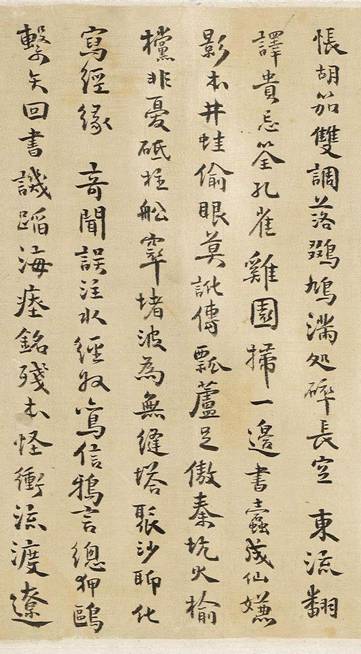 悵胡笳雙調落鳩滿処碎長空 東流翻
譯貴忘筌孔雀雞園掃一邊書蠹成仙嫌
影本井蛙偷眼莫訛傳瓢蘆足傲秦坑火榆
欓非憂砥柱船窣堵波為無縫塔聚沙聊化
寫經緣 奇聞誤注水經奴信鴉言總狎鷗
繫矢回書譏蹈海瘞銘殘本怪衝流渡遼